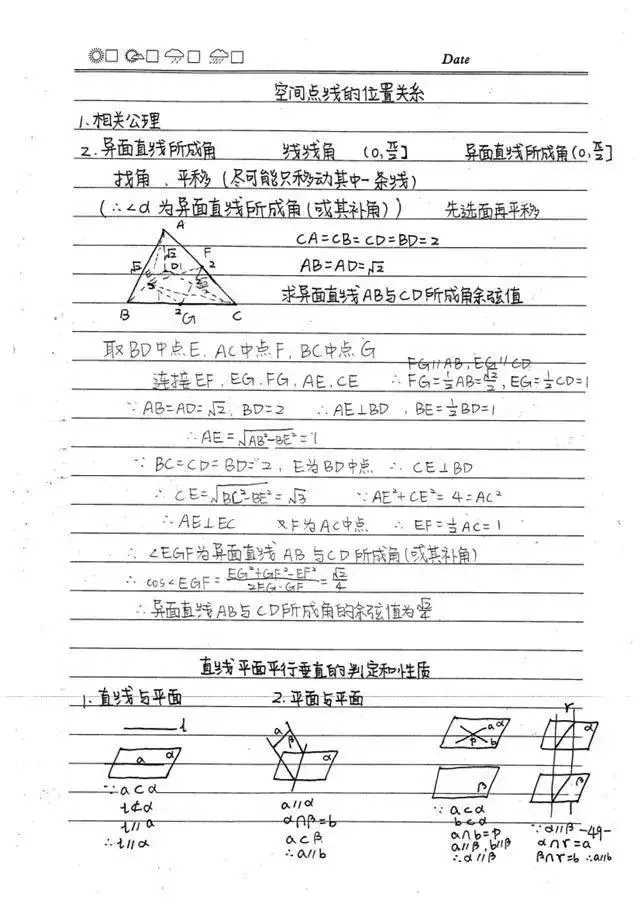 Date
空间点线的位置关系
1.相关公理
2.异面直线所成角 线线角 (0,π/2] 异面直线所成角(0,π/2]
找角、平移(尽可能只移动其中一条线)
(∴∠α为异面直线所成角(或其补角)) 先选面再平移
A
√2 √2 D F 2
B 2 G C
CA=CB=CD=BD=2
AB=AD=√2
求异面直线AB与CD所成角余弦值
取BD中点E、AC中点F、BC中点G
FG∥AB, EG∥CD
连接EF、EG、FG、AE、CE ∴FG=½AB=√2/2, EG=½CD=1
∵AB=AD=√2, BD=2 ∴AE⊥BD, BE=½BD=1
∴AE=√(AB²-BE²)=1
∵BC=CD=BD=2, E为BD中点 ∴CE⊥BD
∴CE=√(BC²-BE²)=√3 ∵AE²+CE²=4=AC²
∴AE⊥EC 又F为AC中点 ∴EF=½AC=1
∴∠EGF为异面直线AB与CD所成角(或其补角)
∴cos∠EGF=(EG²+GF²-EF²)/(2EG·GF)=√2/4
∴异面直线AB与CD所成角的余弦值为√2/4
直线平面平行垂直的判定和性质
1.直线与平面 2.平面与平面
l
a α
∵a⊂α
l⊄α
l∥a
∴l∥α
a β α
a∥α
α∩β=b
a⊂β
∴a∥b
a α
p b
β
∵a⊂α
b⊂α
a∩b=p
a∥β, b∥β
∴α∥β
r
α
β
∵α∥β
α∩r=a
β∩r=b ∴a∥b
-49-